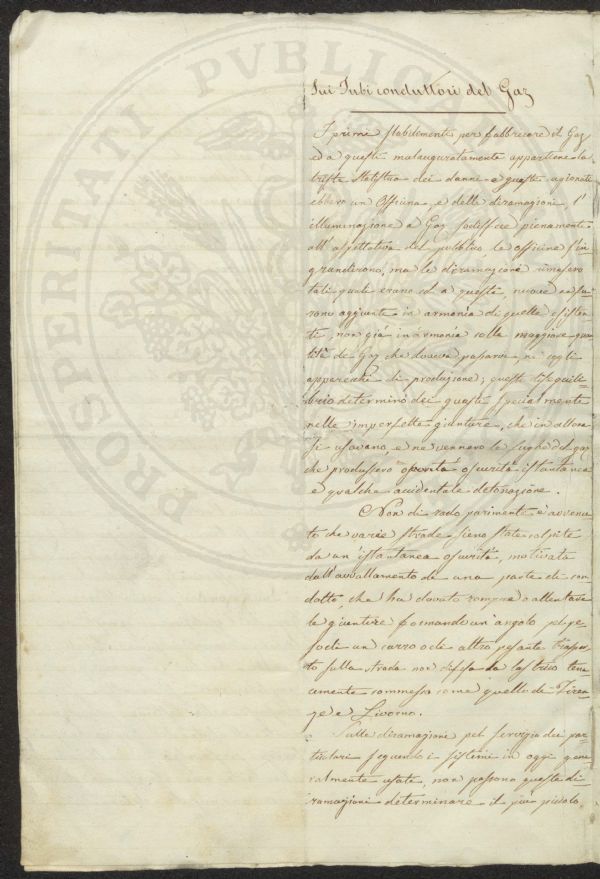 PVBLICAE
PROSPERITATI
Sui Tubi conduttori del Gaz
I primi stabilimenti per fabbricare il Gaz,
ed a questi malauguratamente appartiene la
trista statistica dei danni e guasti cagionati
ebbero un Officina, e delle diramazioni, l'
illuminazione a Gaz sodisfece pienamente
all'aspettativa del pubblico, le officine s'in
grandirono, ma le diramazione rimasero
tali quali erano ed a questi, nuove ne fu=
rono aggiunte in armonia di quelle esisten
ti, non già in armonia colla maggiore quan
tità di Gaz che doveva passarvi, nè cogli
apparecchi di produzione; questo disequili=
brio determinò dei guasti specialmente
nelle imperfette giunture, che in allora
si usavano, e ne vennero le fughe del gaz
che produssero oscurità istantanea
e qualche accidentale detonazione.
Non di rado parimente è avvenu
to che varie strade sieno state colpite
da un'istantanea oscurità, motivata
dall'avvallamento di una parte di con
dotto, che ha dovuto rompere o allentare
le giunture formando un'angolo pel pe
so di un carro o di altro pesante traspor
to sulla strada non difesa da lastrico tena
cemente commesso come quello di Firen=
ze e Livorno.
Sulle diramazioni pel servizio dei par=
ticolari seguendo i sistemi in oggi gene
ralmente usati, non possono queste di=
ramazioni determinare il più piccolo